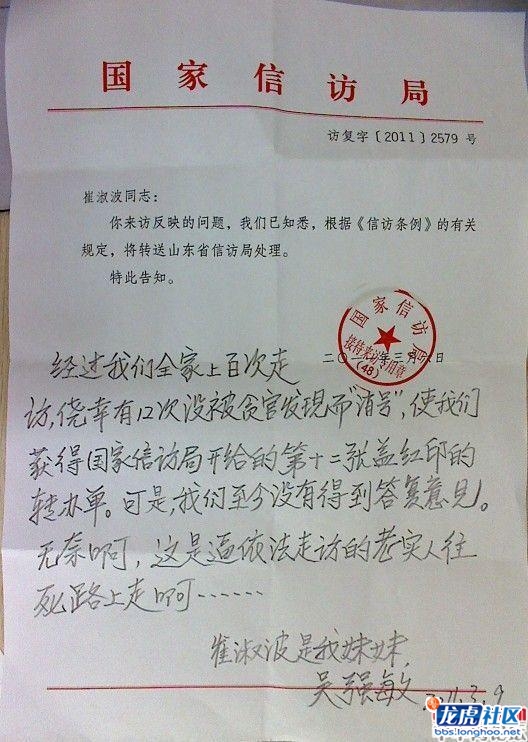 国家信访局
访复字〔2011〕2579 号
崔淑波同志：
你来访反映的问题，我们已知悉，根据《信访条例》的有关
规定，将转送山东省信访局处理。
特此告知。
国家信访局
接待来访专用章
(48)
二〇 年三月 日
经过我们全家上百次走
访，侥幸有12次没被贪官发现而“消号”，使我们
获得国家信访局开给的第十二张盖红印的
转办单。可是，我们至今没有得到答复意见。
无奈啊，这是逼依法走访的老实人往
死路上走啊……
崔淑波是我妹妹，
吴强敏 2011.3.9
龙虎社区
bbs.longhoo.net